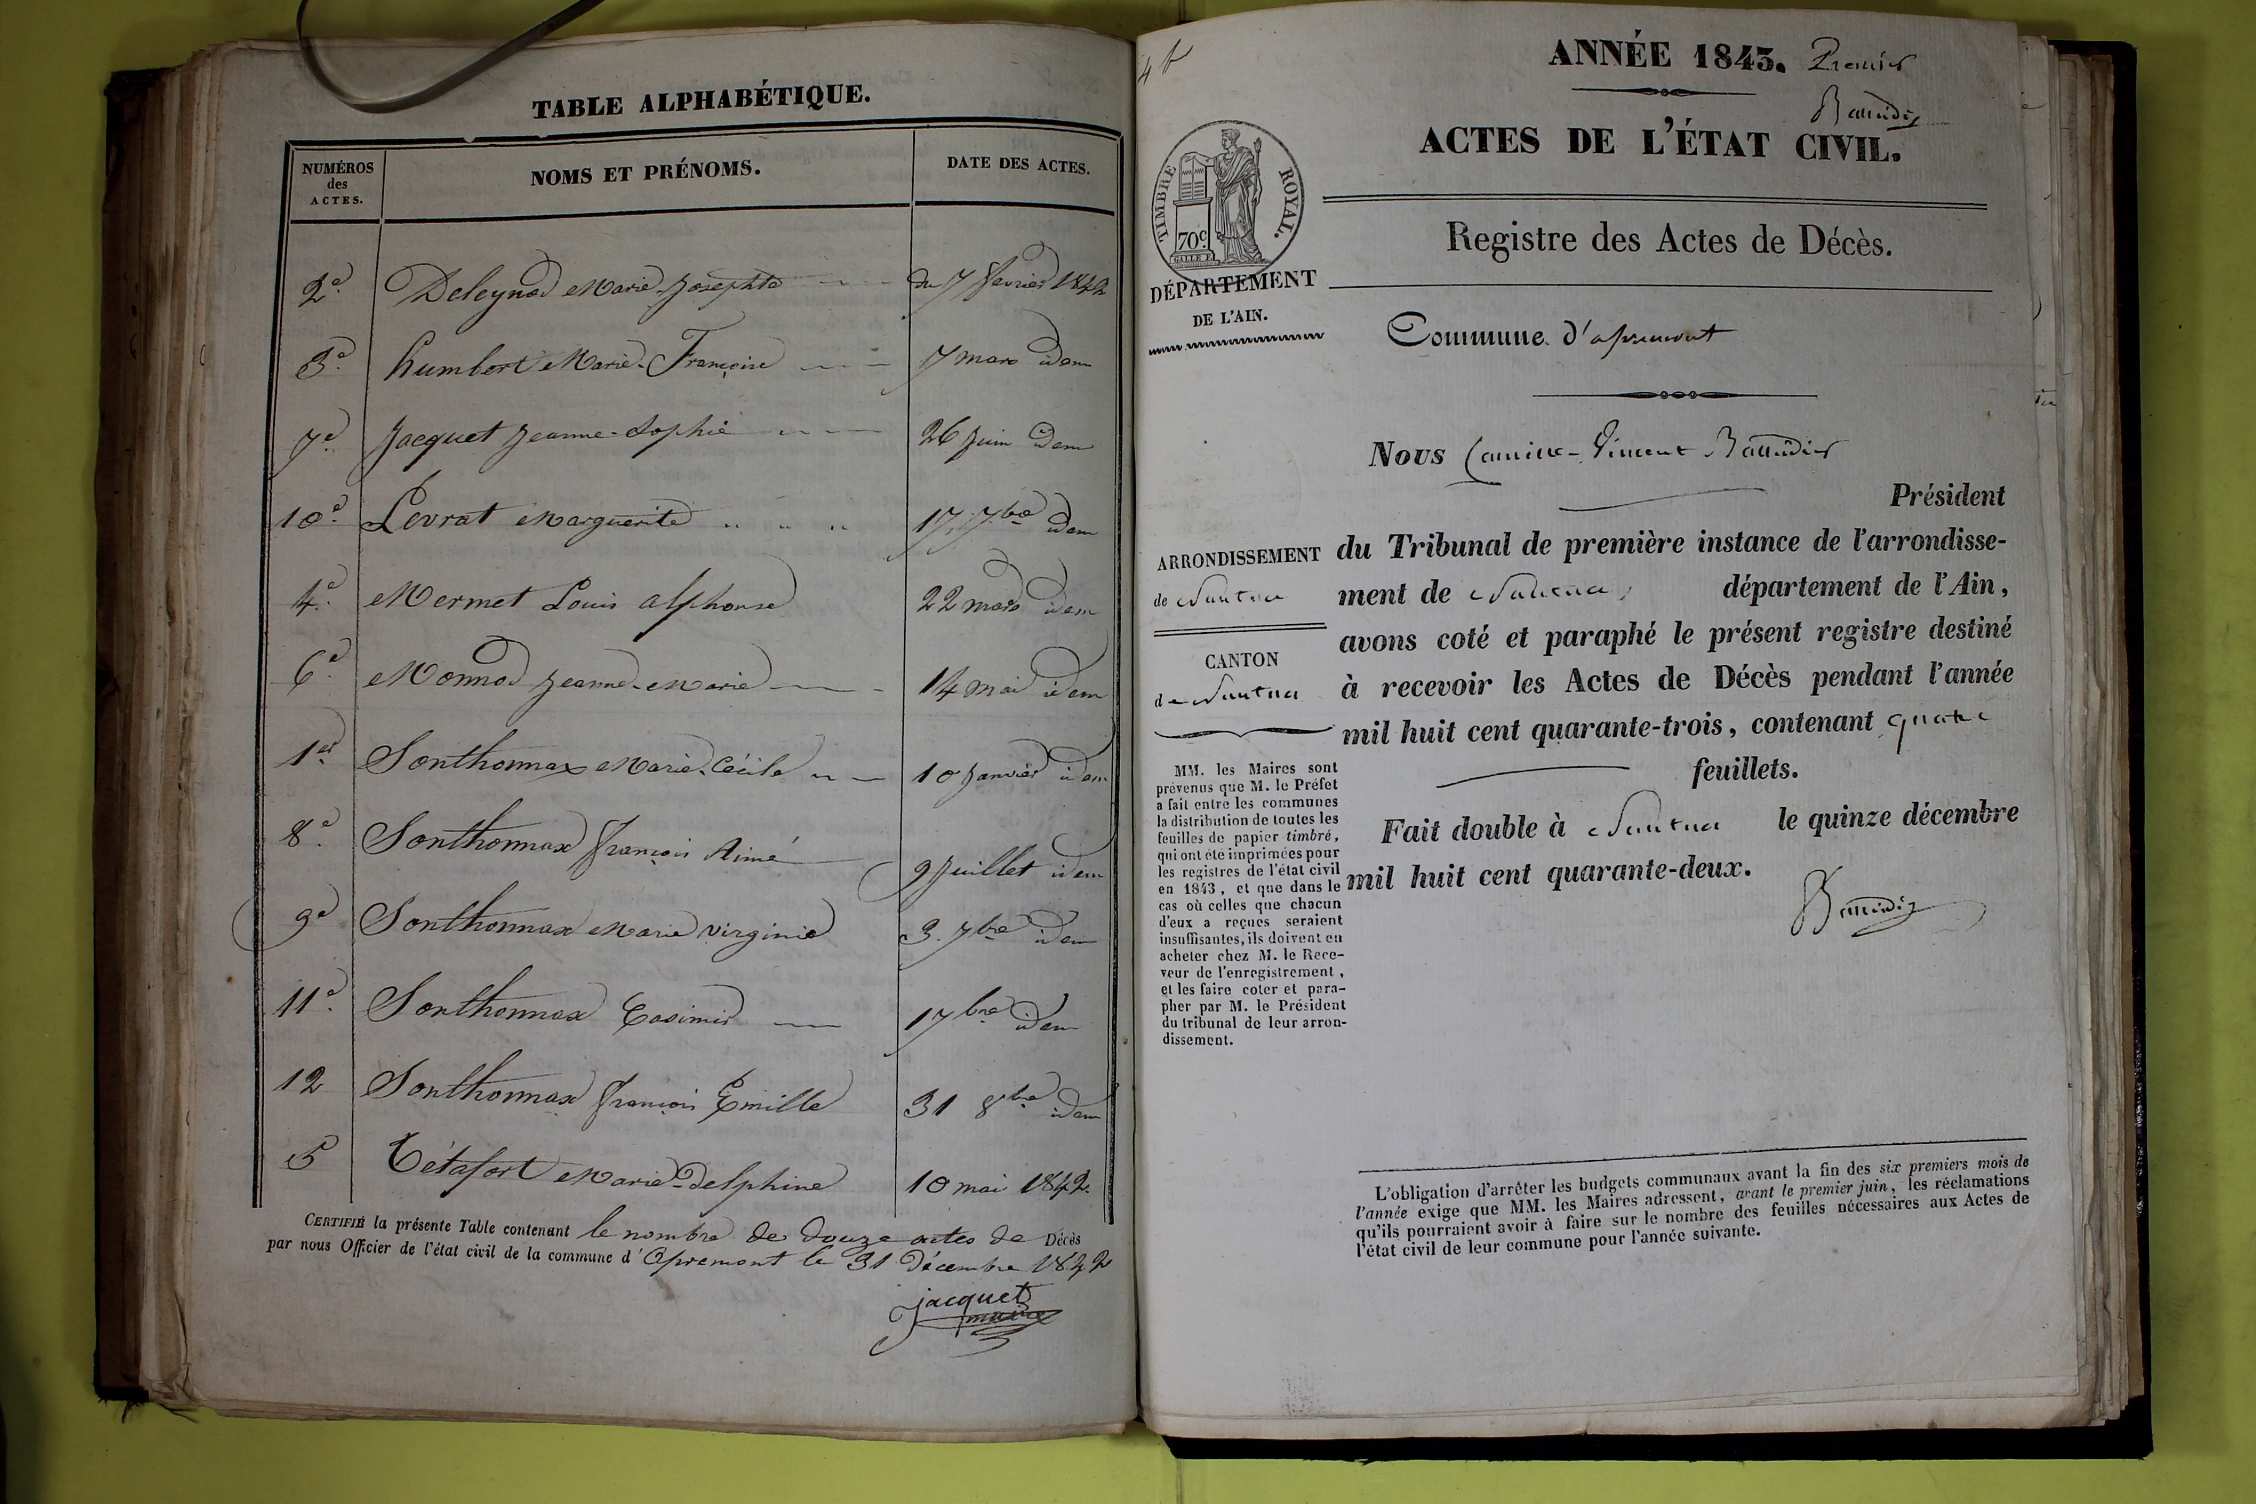 TABLE ALPHABÉTIQUE.
NUMÉROS
des
ACTES.
NOMS ET PRÉNOMS.
DATE DES ACTES.
2e. Deleynod Marie-Josephte du 7 février 1842
3e. humbert Marie-Françoise 7 mars idem
7e. Jacquet Jeanne-Sophie 26 Juin idem
10e. Levrat Marguerite 17 7bre idem
4e. Mermet Louis alphonse 22 mars idem
6e. Monnod Jeanne-Marie 14 mai idem
1er. Sonthonnax Marie-Cécile 10 Janvier idem
8e. Sonthonnax françois Aimé 9 Juillet idem
9e Sonthonnax Marie virginie 3. 7bre idem
11e. Sonthonnax Casimir 17 bre idem
12 Sonthonnax françois Emille 31 8bre idem
5 Tétafort Marie-delphine 10 mai 1842.
CERTIFIÉ la présente Table contenant le nombre de douze actes de Décès
par nous Officier de l'état civil de la commune d'Apremont le 31 Décembre 1842
jacquet
maire
ANNÉE 1843. Premier
ACTES DE L'ÉTAT CIVIL.
TIMBRE ROYAL.
70c.
Registre des Actes de Décès.
DÉPARTEMENT
DE L'AIN.
Commune d'apremont
Nous Camille-Vincent Baudier
Président
ARRONDISSEMENT
de Nantua
CANTON
de Nantua
du Tribunal de première instance de l'arrondisse-
ment de Nantua, département de l'Ain,
avons coté et paraphé le présent registre destiné
à recevoir les Actes de Décès pendant l'année
mil huit cent quarante-trois, contenant quatre
feuillets.
Fait double à Nantua le quinze décembre
mil huit cent quarante-deux.
MM. les Maires sont
prévenus que M. le Préfet
a fait entre les communes
la distribution de toutes les
feuilles de papier timbré,
qui ont été imprimées pour
les registres de l'état civil
en 1843, et que dans le
cas où celles que chacun
d'eux a reçues seraient
insuffisantes, ils doivent en
acheter chez M. le Rece-
veur de l'enregistrement,
et les faire coter et para-
pher par M. le Président
du tribunal de leur arron-
dissement.
L'obligation d'arrêter les budgets communaux avant la fin des six premiers mois de
l'année exige que MM. les Maires adressent, avant le premier juin, les réclamations
qu'ils pourraient avoir à faire sur le nombre des feuilles nécessaires aux Actes de
l'état civil de leur commune pour l'année suivante.